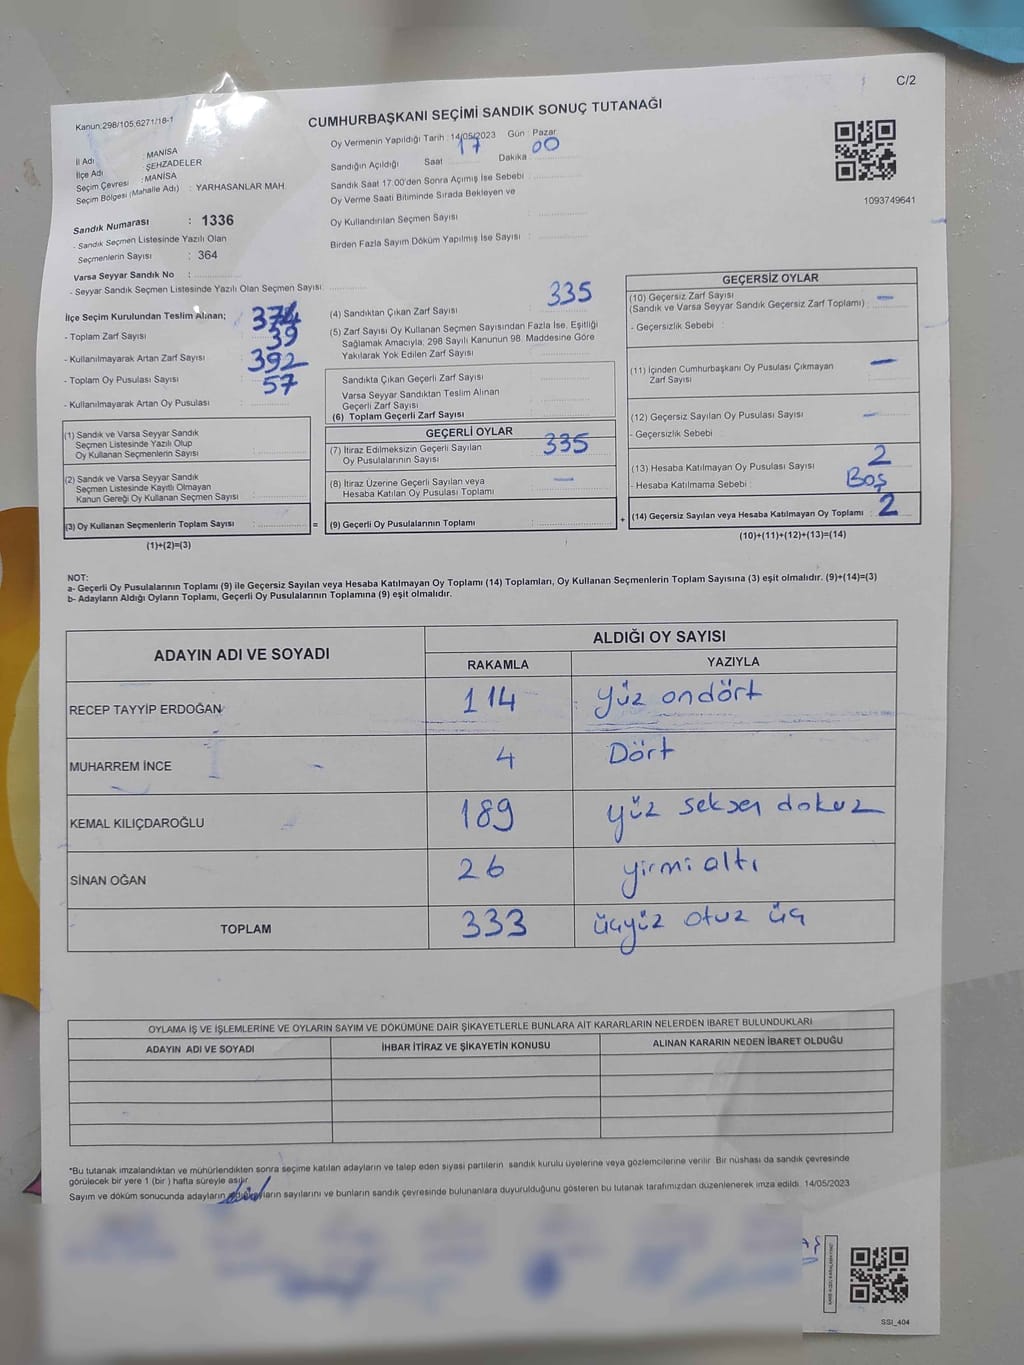 C/2
Kanun:298/105,6271/18-1
CUMHURBAŞKANI SEÇİMİ SANDIK SONUÇ TUTANAĞI
İl Adı : MANİSA
İlçe Adı : ŞEHZADELER
Seçim Çevresi : MANİSA
Seçim Bölgesi (Mahalle Adı) : YARHASANLAR MAH.
Sandık Numarası : 1336
- Sandık Seçmen Listesinde Yazılı Olan
Seçmenlerin Sayısı : 364
Varsa Seyyar Sandık No :
- Seyyar Sandık Seçmen Listesinde Yazılı Olan Seçmen Sayısı:
Oy Vermenin Yapıldığı Tarih : 14/05/2023 Gün : Pazar
Sandığın Açıldığı Saat 17 Dakika 00
Sandık Saat 17:00'den Sonra Açımış İse Sebebi :
Oy Verme Saati Bitiminde Sırada Bekleyen ve
Oy Kullandırılan Seçmen Sayısı :
Birden Fazla Sayım Döküm Yapılmış İse Sayısı :
1093749641
İlçe Seçim Kurulundan Teslim Alınan;
- Toplam Zarf Sayısı : 374
- Kullanılmayarak Artan Zarf Sayısı : 39
- Toplam Oy Pusulası Sayısı : 392
- Kullanılmayarak Artan Oy Pusulası : 57
(1) Sandık ve Varsa Seyyar Sandık
Seçmen Listesinde Yazılı Olup
Oy Kullanan Seçmenlerin Sayısı :
(2) Sandık ve Varsa Seyyar Sandık
Seçmen Listesinde Kayıtlı Olmayan
Kanun Gereği Oy Kullanan Seçmen Sayısı :
(3) Oy Kullanan Seçmenlerin Toplam Sayısı : =
(1)+(2)=(3)
(4) Sandıktan Çıkan Zarf Sayısı : 335
(5) Zarf Sayısı Oy Kullanan Seçmen Sayısından Fazla İse, Eşitliği
Sağlamak Amacıyla, 298 Sayılı Kanunun 98. Maddesine Göre
Yakılarak Yok Edilen Zarf Sayısı :
Sandıkta Çıkan Geçerli Zarf Sayısı :
Varsa Seyyar Sandıktan Teslim Alınan
Geçerli Zarf Sayısı :
(6) Toplam Geçerli Zarf Sayısı :
GEÇERLİ OYLAR
(7) İtiraz Edilmeksizin Geçerli Sayılan
Oy Pusulalarının Sayısı : 335
(8) İtiraz Üzerine Geçerli Sayılan veya
Hesaba Katılan Oy Pusulası Toplamı : —
(9) Geçerli Oy Pusulalarının Toplamı : +
GEÇERSİZ OYLAR
(10) Geçersiz Zarf Sayısı : —
(Sandık ve Varsa Seyyar Sandık Geçersiz Zarf Toplamı)
- Geçersizlik Sebebi :
(11) İçinden Cumhurbaşkanı Oy Pusulası Çıkmayan
Zarf Sayısı : —
(12) Geçersiz Sayılan Oy Pusulası Sayısı : —
- Geçersizlik Sebebi :
(13) Hesaba Katılmayan Oy Pusulası Sayısı : 2
- Hesaba Katılmama Sebebi : Boş
(14) Geçersiz Sayılan veya Hesaba Katılmayan Oy Toplamı : 2
(10)+(11)+(12)+(13)=(14)
NOT:
a- Geçerli Oy Pusulalarının Toplamı (9) ile Geçersiz Sayılan veya Hesaba Katılmayan Oy Toplamı (14) Toplamları, Oy Kullanan Seçmenlerin Toplam Sayısına (3) eşit olmalıdır. (9)+(14)=(3)
b- Adayların Aldığı Oyların Toplamı, Geçerli Oy Pusulalarının Toplamına (9) eşit olmalıdır.
ADAYIN ADI VE SOYADI
ALDIĞI OY SAYISI
RAKAMLA YAZIYLA
RECEP TAYYİP ERDOĞAN 114 yüz ondört
MUHARREM İNCE 4 Dört
KEMAL KILIÇDAROĞLU 189 yüz seksen dokuz
SİNAN OĞAN 26 yirmi altı
TOPLAM 333 üçyüz otuz üç
OYLAMA İŞ VE İŞLEMLERİNE VE OYLARIN SAYIM VE DÖKÜMÜNE DAİR ŞİKAYETLERLE BUNLARA AİT KARARLARIN NELERDEN İBARET BULUNDUKLARI
ADAYIN ADI VE SOYADI İHBAR İTİRAZ VE ŞİKAYETİN KONUSU ALINAN KARARIN NEDEN İBARET OLDUĞU
*Bu tutanak imzalandıktan ve mühürlendikten sonra seçime katılan adayların ve talep eden siyasi partilerin sandık kurulu üyelerine veya gözlemcilerine verilir. Bir nüshası da sandık çevresinde
görülecek bir yere 1 (bir) hafta süreyle asılır.
Sayım ve döküm sonucunda adayların sayılarını ve bunların sandık çevresinde bulunanlara duyurulduğunu gösteren bu tutanak tarafımızdan düzenlenerek imza edildi. 14/05/2023
SSI_404